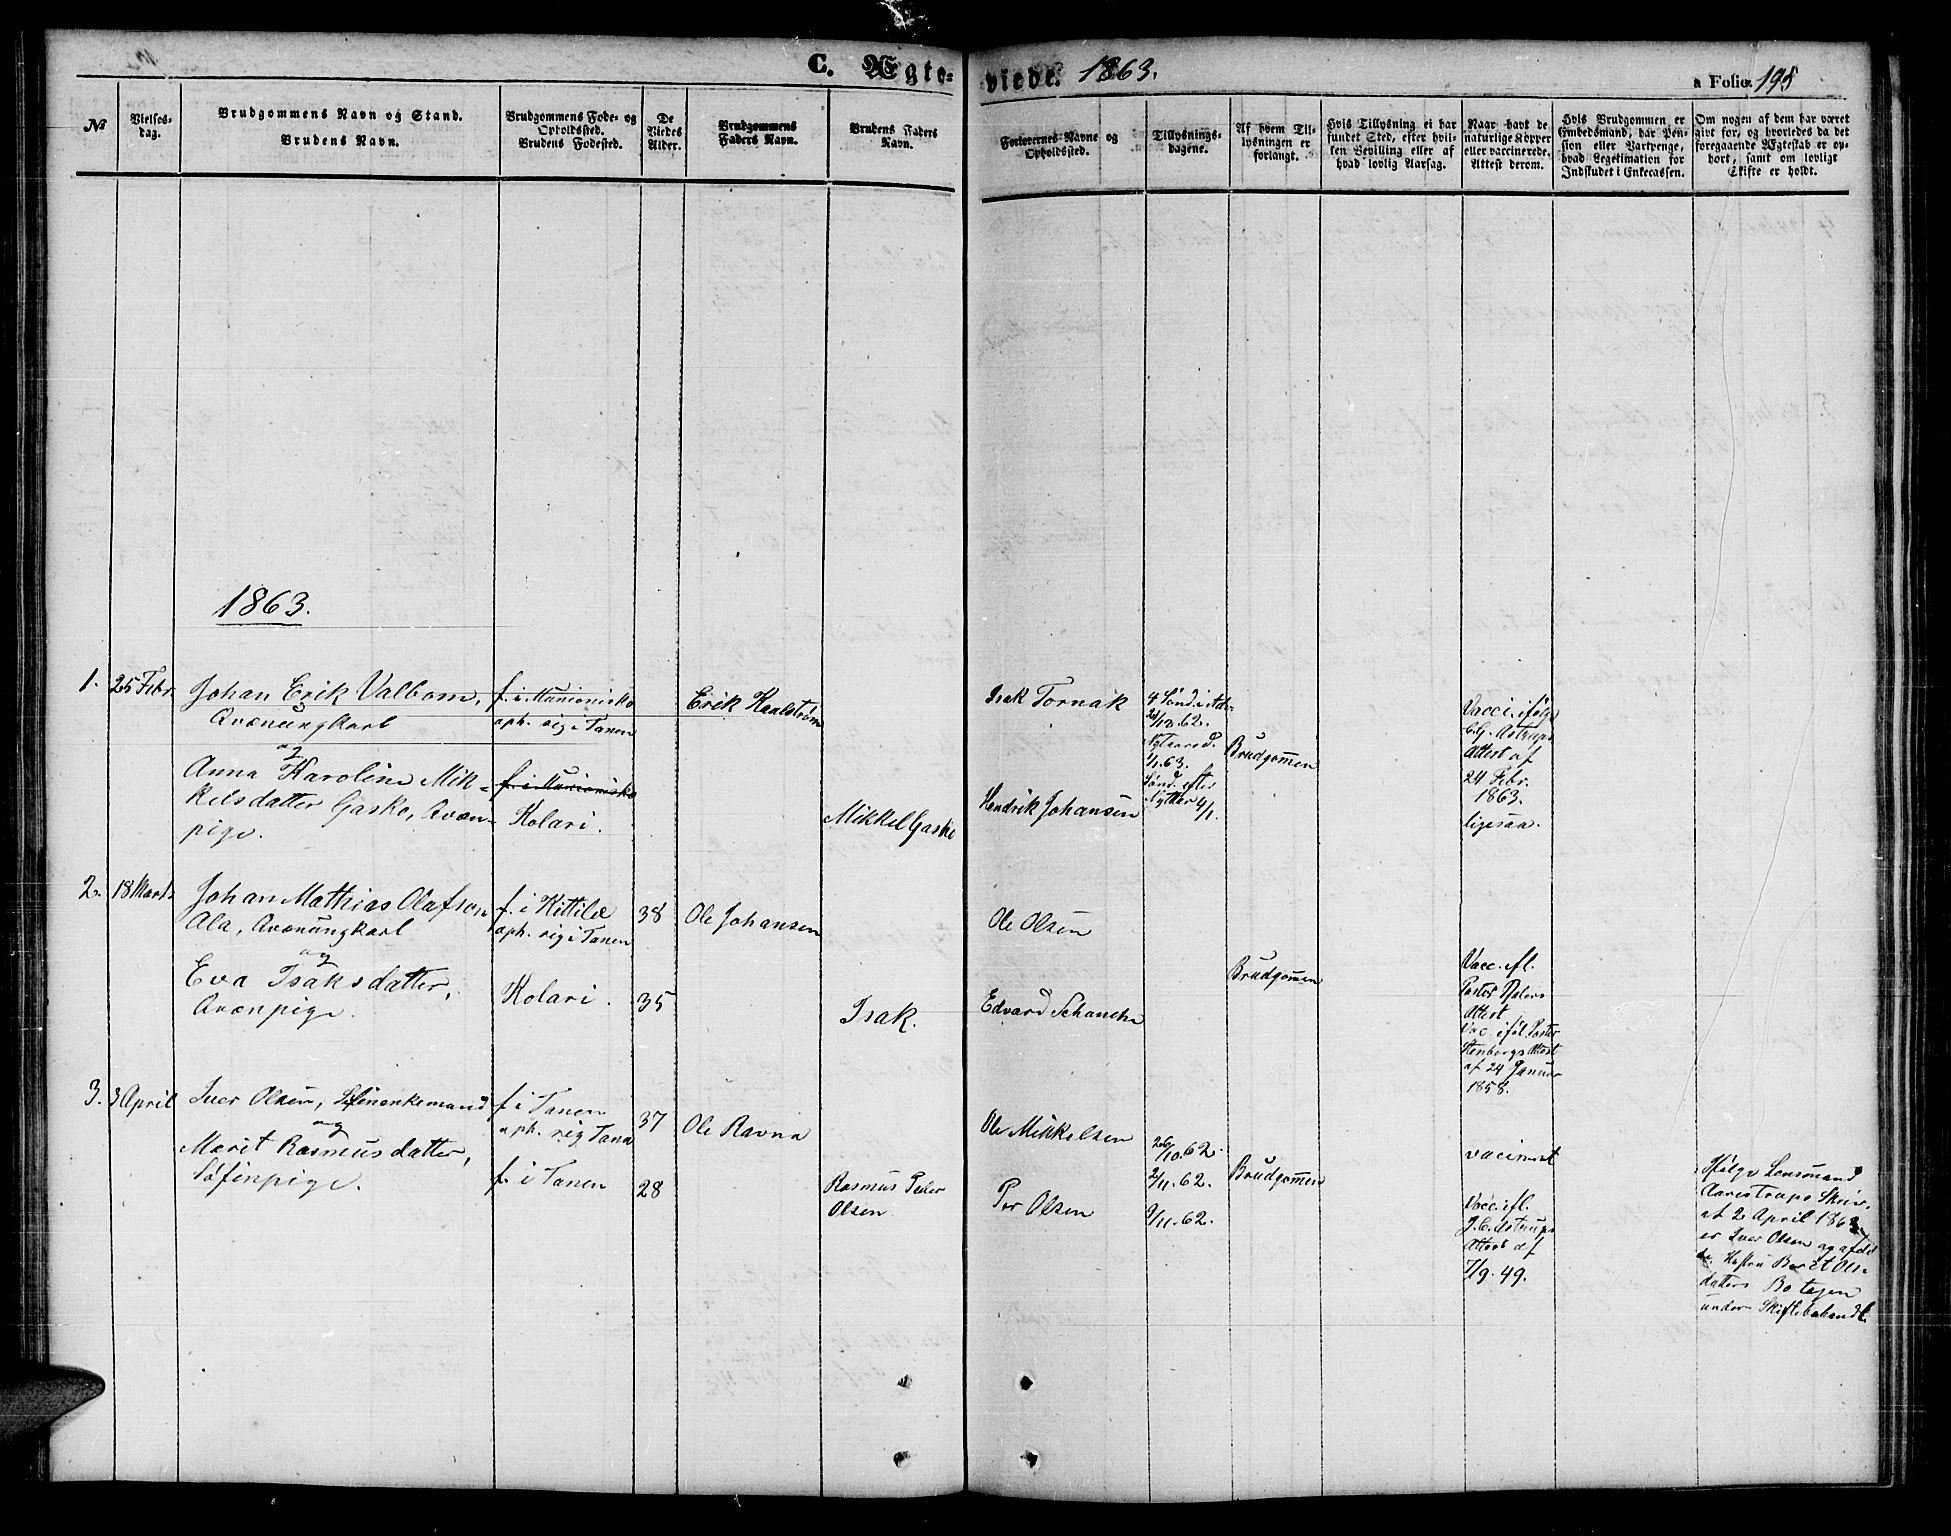 C. Ægte-
viede. 1863.
a Folio. 195
№
Vielses-
dag.
Brudgommens Navn og Stand.
Brudens Navn.
Brudgommens Føde- og
Opholdssted.
Brudens Fødested.
De
Viedes
Alder.
Brudgommens
Faders Navn.
Brudens Faders
Navn.
Forlovernes Navne og
Opholdssted.
Tillysnings-
dagene.
Af hvem Til-
lysningen er
forlangt.
Hvis Tillysning ei har
fundet Sted, efter hvil-
ken Bevilling eller af
hvad lovlig Aarsag.
Naar havt de
naturlige Kopper
eller vaccinerede.
Attest derom.
Hvis Brudgommen er
Embedsmand, har Pen-
sion eller Vartpenge,
hvad Legitimation for
Indskudet i Enkecassen.
Om nogen af dem har været
givt før, og hvorledes da det
foregaaende Ægteskab er op-
hørt, samt om lovligt
Skifte er holdt.
1863.
1. 25 Febr.
Johan Erik Valbom,
Qvænungkarl
og
Anna Karoline Mik-
kelsdatter Gasko, Qvæn-
pige.
f. i Muonionisko
oph. sig i Tanen
f. i Muonionisko
Kolari.
Erik Karlstrøm
Mikkel Gasko
Isak Tornak
Hendrik Johansen
4 Sønd. i Adv.
21/12. 62.
Nytaarsd.
1/1. 63.
Sønd. efter
Nytaar 4/1.
Brudgommen
Vacci. ifølge
C. G. Astrups
Attest af
24 Febr.
1863.
ligesaa.
2. 18 Marts
Johan Mathias Olafsen
Ala, Qvænungkarl
og
Eva Isaksdatter,
Qvænpige.
f. i Kittile
oph. sig i Tanen
Kolari.
38
35
Ole Johansen
Isak.
Ole Olsen
Edvard Schanche
Brudgommen
Vacc. ifl.
Pastor
Attest
Vac. iføl. Pastor
Stenborgs Attest
af 24 Januar
1858.
3. 3 April
Iver Olsen, Søfinenkemand
og
Marit Rasmusdatter,
Søfinpige.
f. i Tanen
oph. sig Tana
f. i Tanen
37
28
Ole Ravna
Rasmus Peder
Olsen
Ole Mikkelsen
Per Olsen
26/10. 62.
2/11. 62.
9/11. 62.
Brudgommen
vacineret
Vacc. ifl.
J. C. Astrups
Attest af
7/9. 49.
Ifølge Lensmand
Aarestrups Skriv.
af 2 April 1863
er Iver Olsen og afdø
de Hustru Beret Ols-
datters Bo tagen
under Skiftebehandl.